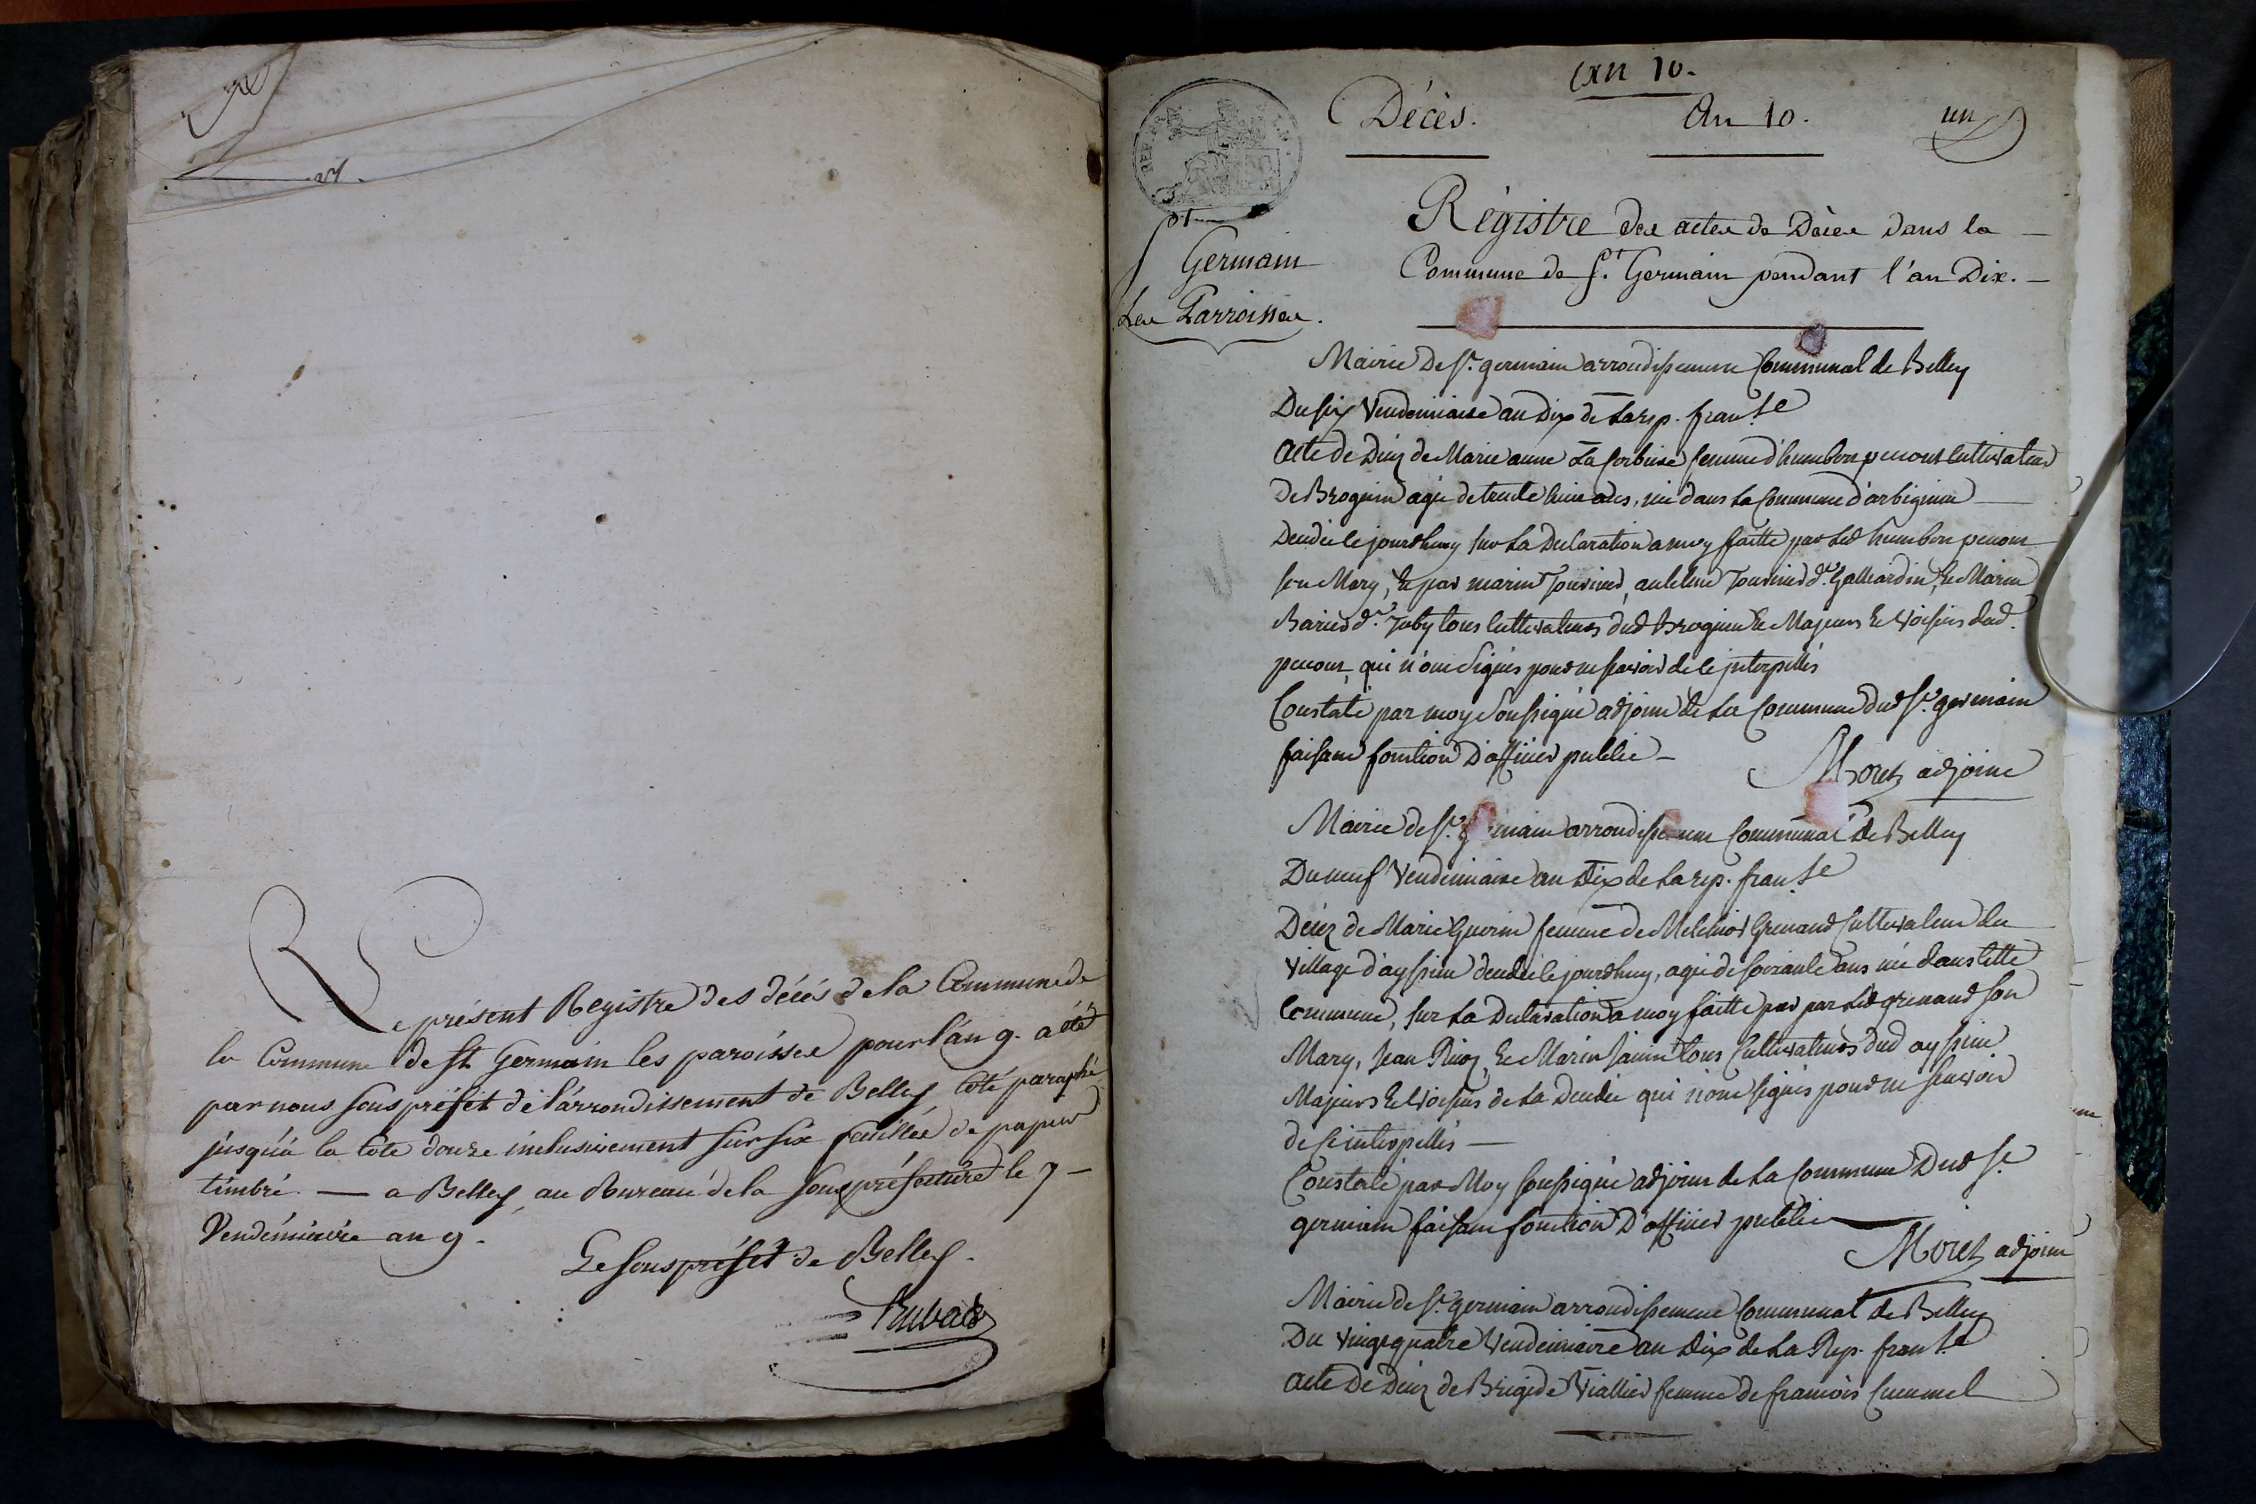 Le présent Registre des décés de la Commune de
la Commune de St Germain les paroisses pour l'an 9. a été
par nous sous préfet de l'arrondissement de Belley coté paraphé
jusqu'à la cote douze inclusivement sur six feuilles de papier
timbré. — a Belley, au Bureau de la sous préfecture le 7 —
Vendémiaire an 9.
Le sous préfet de Belley.
Rubat
an 10.
Décès. An 10. un
St
Germain
Les Parroisses.
Régistre des actes de Décès dans la —
Commune de St. Germain pendant l'an Dix. —
Mairie De St. germain arrondissement Communal de Belley
Du six Vendemiaire an dix de La rep. franse
acte de Deces de Marie anne La femme d'humbert penout cultivateur
De Brognin agée de trente huit ans, née dans La Commune d'arbignieu
Decedée le jourdhuy sur La Declaration a moy faitte par Led humbert penout
son Mary, Et par marin et Marin
tous Cultivateurs dud Brognin Et Majeurs Et Voisins dud.
penout, qui n'ont signés pour ne savoir de ce interpellés
Constaté par moy Soussigné adjoint de La Commune dud St. germain
faisant fonction D'officier public —
Moret adjoint
Mairie de St. germain arrondissement Communal De Belley
Du neuf Vendemiaire an dix de La rep. franse
Décéz de Marie Guerin femme de Melchior Grinand Cultivateur du
Village d'ayssieu decedée le jourdhuy, agée de soixante ans née dans cette
Commune, sur La Declaration a moy faitte par par Led grinand son
Mary, Jean Et Marin Janin tous Cultivateurs dud ayssieu
Majeurs Et Voisins de La Decedée qui n'ont signés pour ne scavoir
de ce interpellés —
Constaté par Moy soussigné adjoint de La Commune Dud St.
germain faisant fonction D'officier public
Moret adjoint
Mairie de St. germain arrondissement Communal de Belley
Du vingt quatre Vendemiaire an Dix de La Rep. franse
acte De Deces de Brigide Viallet femme de francois